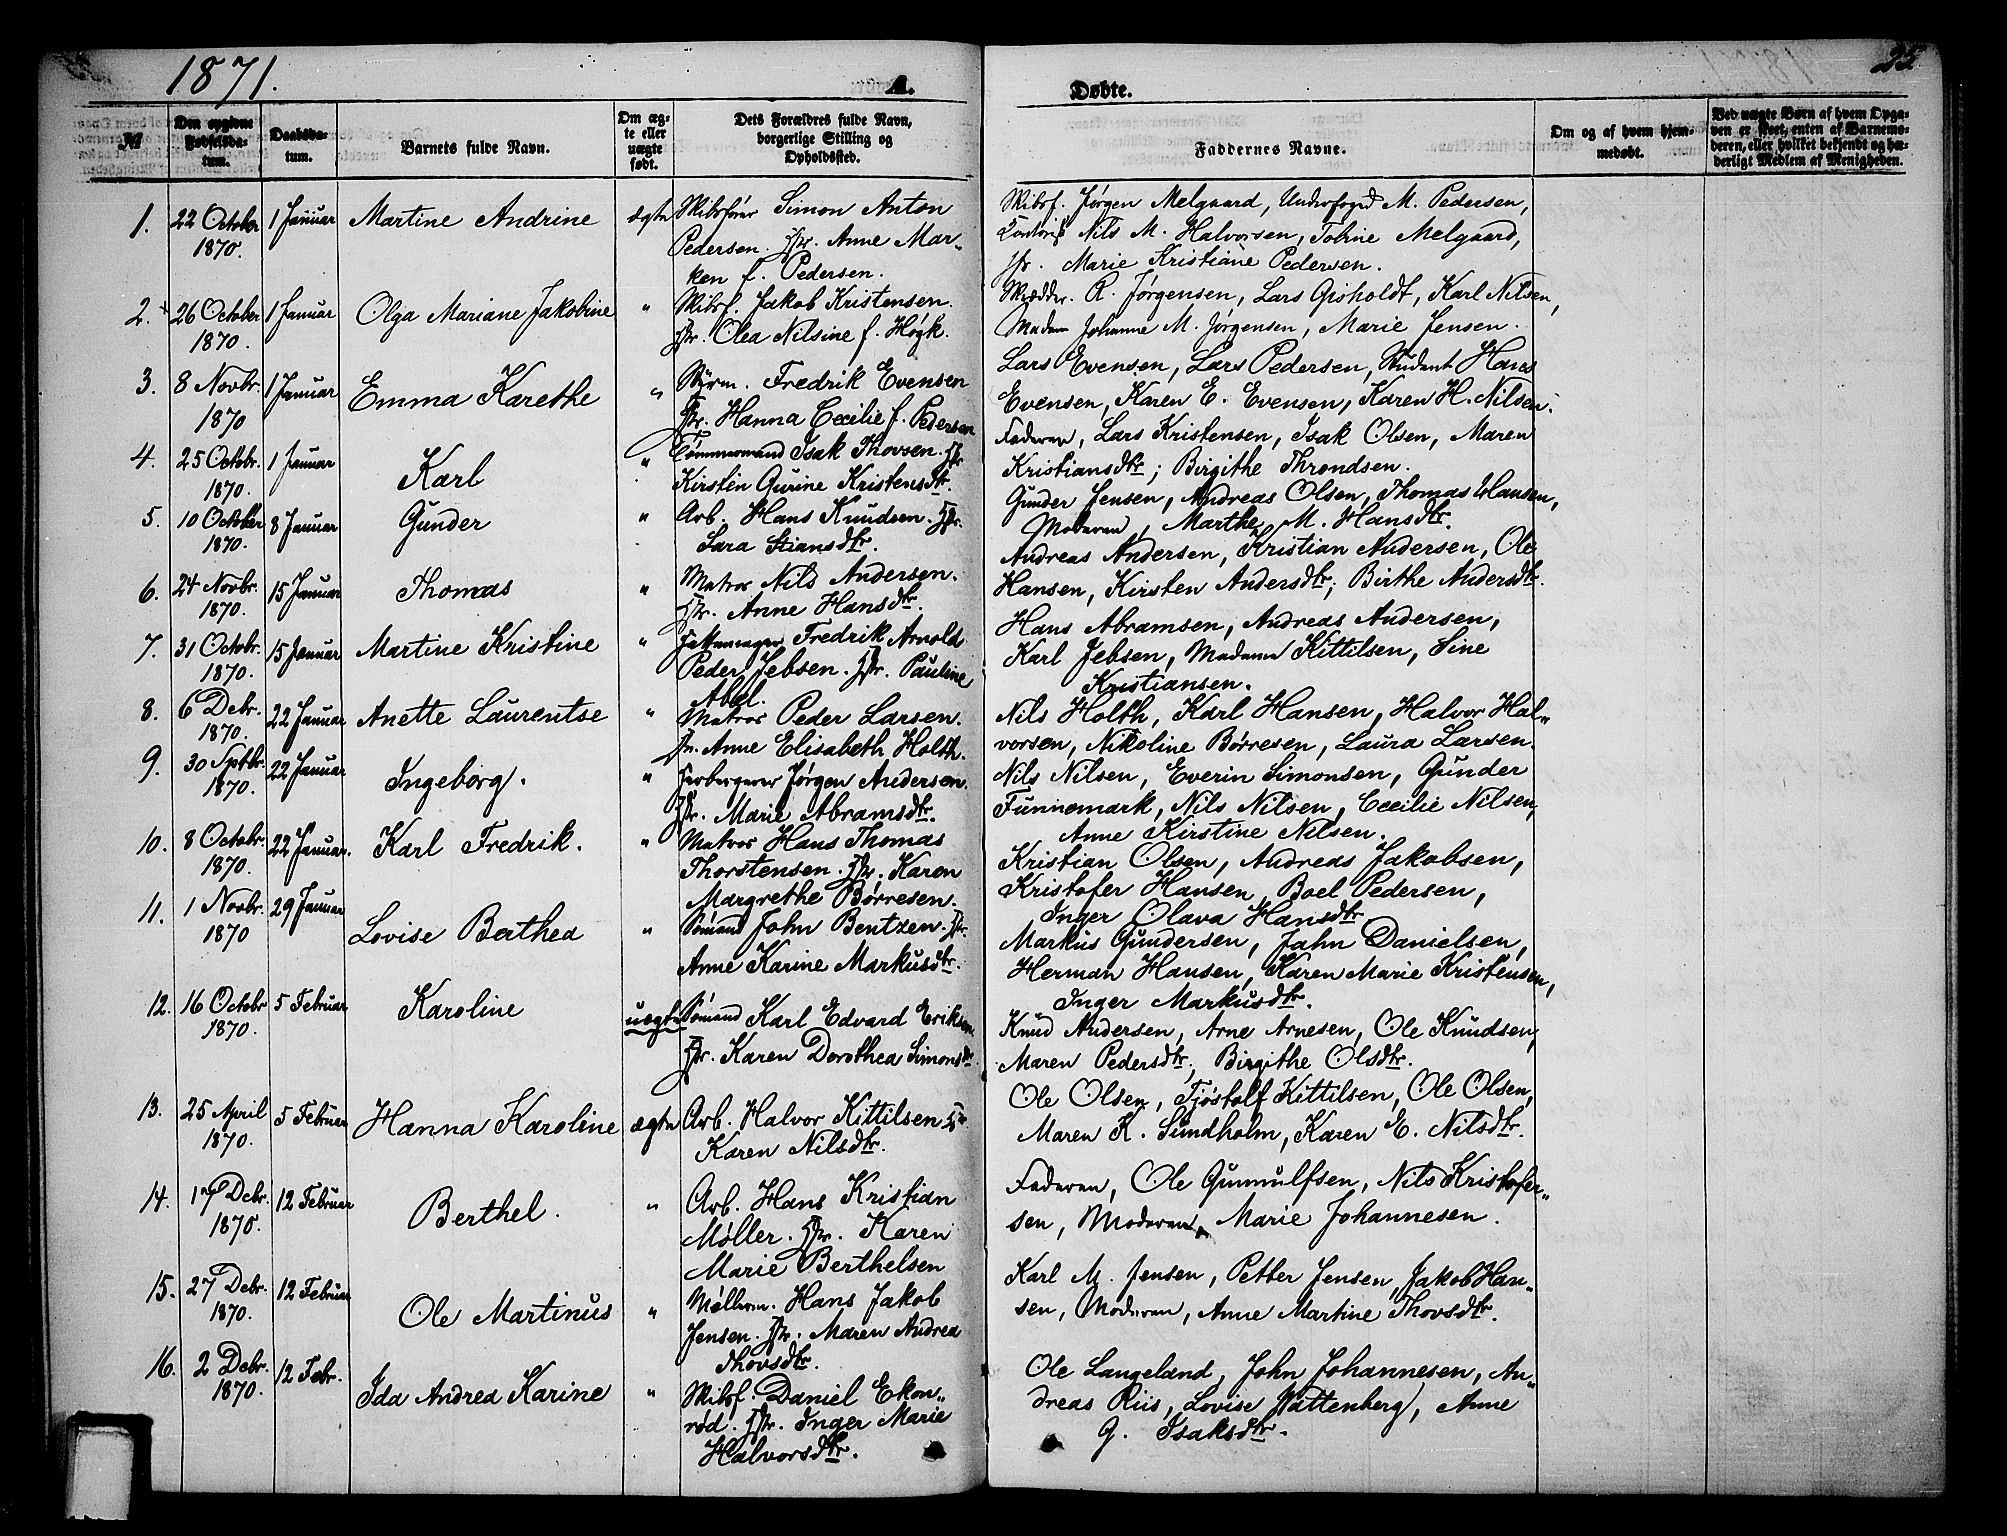 1871.
A.
Døbte.
25
№
Den opgivne Fødselsda- tum.
Daabsda- tum.
Barnets fulde Navn.
Om æg- te eller uægte født.
Dets Forældres fulde Navn, borgerlige Stilling og Opholdssted.
Faddernes Navne.
Om og af hvem hjem- medøbt.
Ved uægte Børn af hvem Opga- ven er skeet, enten af Barnemo- deren, eller hvilket bekjendt og hæ- derligt Medlem af Menigheden.
1. 22 October 1870. 1 Januar Martine Andrine ægte Skibsfører Simon Anton
Pedersen. Hstr. Anne Mar-
ken f. Pedersen.
Skibsf. Jørgen Melgaard, Underfoged M. Pedersen,
Nils M. Halvorsen, Tobine Melgaard,
Marie Kristiane Pedersen.
2. 26 October 1870. 1 Januar Olga Mariane Jakobine " Skibsf. Jakob Kristensen.
Hstr. Olea Nilsine f. Høgk.
Skredder. R. Jørgensen, Lars Gisholdt, Karl Nilsen,
Madam Johanne M. Jørgensen, Marie Jensen.
3. 8 Novbr. 1870 1 Januar Emma Karethe " Styrm. Fredrik Evensen
Hstr. Hanna Cecilie f. Pedersen
Lars Evensen, Lars Pedersen, Student Hans
Evensen, Karen E. Evensen, Karen H. Nilsen.
4. 25 Octobr. 1870. 1 Januar Karl " Tømmermand Isak Thovsen. Hstr.
Kirsten Gurine Kristensdtr.
Faderen, Lars Kristensen, Isak Olsen, Maren
Kristiansdtr; Birgithe Throndsen.
5. 10 October 1870. 8 Januar Gunder " Arb. Hans Knudsen. Hstr.
Sara Stiansdtr.
Gunder Jensen, Andreas Olsen, Thomas Hansen,
Moderen, Marthe M. Hansdtr.
6. 24 Novbr. 1870. 15 Januar Thomas " Matros Nils Andersen.
Hstr. Anne Hansdtr.
Andreas Andersen, Kristian Andersen, Ole
Hansen, Kirsten Andersdtr; Birthe Andersdtr.
7. 31 Octobr. 1870. 15 Januar Martine Kristine " Fredrik Arnold
Peder Jebsen. Hstr. Pauline
Abel.
Hans Abramsen, Andreas Andersen,
Karl Jebsen, Madame Kittilsen, Sine
Kristiansen.
8. 6 Debr. 1870. 22 Januar Anette Laurentse " Matros Peder Larsen.
Hstr. Anne Elisabeth Holth.
Nils Holth, Karl Hansen, Halvor Hal-
vorsen, Nikoline Børresen, Laura Larsen.
9. 30 Septbr. 1870. 22 Januar Ingeborg. " Herbergerer Jørgen Andersen.
Hstr. Marie Abramsdtr.
Nils Nilsen, Everin Simonsen, Gunder
Funnemark, Nils Nilsen, Cecilie Nilsen,
Anne Kirstine Nilsen.
10. 8 Octobr. 1870. 22 Januar. Karl Fredrik. " Matros Hans Thomas
Thorstensen. Hstr. Karen
Margrethe Børresen.
Kristian Olsen, Andreas Jakobsen,
Kristofer Hansen, Boel Pedersen,
Inger Olava Hansdtr
11. 1 Novbr. 1870 29 Januar Lovise Berthea " Sømand John Bentzen. Hstr.
Anne Karine Markusdtr.
Markus Gundersen, Jahn Danielsen,
Herman Hansen, Karen Marie Kristensen,
Inger Markusdtr.
12. 16 Octobr 1870. 5 Februar Karoline uægte Sømand Karl Edvard Eriksen.
Hstr. Karen Dorothea Simonsdtr.
Knud Andersen, Arne Arnesen, Ole Knudsen,
Maren Pedersdtr; Birgithe Olsdtr.
13. 25 April 1870. 5 Februar Hanna Karoline ægte Arb. Halvor Kittilsen
Karen Nilsdtr.
Ole Olsen, Tjøstolf Kittilsen, Ole Olsen,
Maren K. Sundholm, Karen E. Nilsdtr.
14. 17 Debr. 1870. 12 Februar Berthel. " Arb. Hans Kristian
Møller. Hstr. Karen
Marie Berthelsen
Faderen, Ole Gunnulfsen, Nils Kristofer-
sen, Moderen, Marie Johannesen.
15. 27 Debr. 1870. 12 Februar Ole Martinus " Møllerm. Hans Jakob
Jensen. Hstr. Maren Andrea
Thovsdtr.
Karl M. Jensen, Petter Jensen, Jakob Han-
sen, Moderen, Anne Martine Thovsdtr.
16. 2 Debr. 1870. 12 Febr. Ida Andrea Karine " Skibsf. Daniel Ekon-
rød. Hstr. Inger Marie
Halvorsdtr.
Ole Langeland, John Johannesen, An-
dreas Riis, Lovise Wattenberg, Anne
G. Isaksdtr.